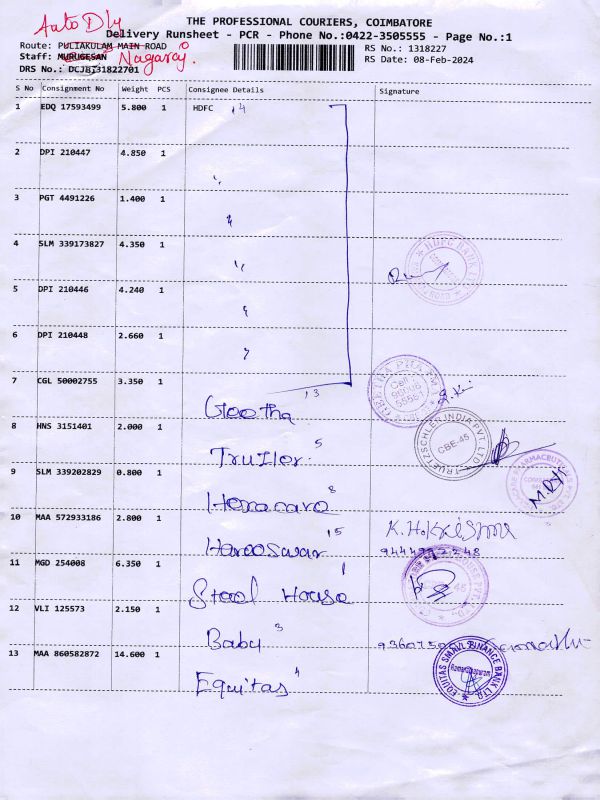 Auto Dly
THE PROFESSIONAL COURIERS, COIMBATORE
Delivery Runsheet - PCR - Phone No.:0422-3505555 - Page No.:1
Route: PULIAKULAM MAIN ROAD
RS No.: 1318227
Staff: MURUGESAN Nagaraj.
RS Date: 08-Feb-2024
DRS No.: DCJBI31822701
S No Consignment No Weight PCS Consignee Details Signature
1 EDQ 17593499 5.800 1 HDFC 14
2 DPI 210447 4.850 1 "
3 PGT 4491226 1.400 1 "
4 SLM 339173827 4.350 1 "
HDFC BANK
5 DPI 210446 4.240 1 "
6 DPI 210448 2.660 1 "
7 CGL 50002755 3.350 1
Geetha 13
GEETHA PHARMA
Cell
8 HNS 3151401 2.000 1
Truitler 5
TRUETZSCHLER INDIA PVT. LTD
CBE-45
9 SLM 339202829 0.800 1
8
10 MAA 572933186 2.800 1
Hareeswar 15
K.H
11 MGD 254008 6.350 1
Steel House 1
12 VLI 125573 2.150 1
Baby 3
13 MAA 860582872 14.600 1
Equitas 4
EQUITAS SMALL FINANCE BANK LTD
Ramanathapuram